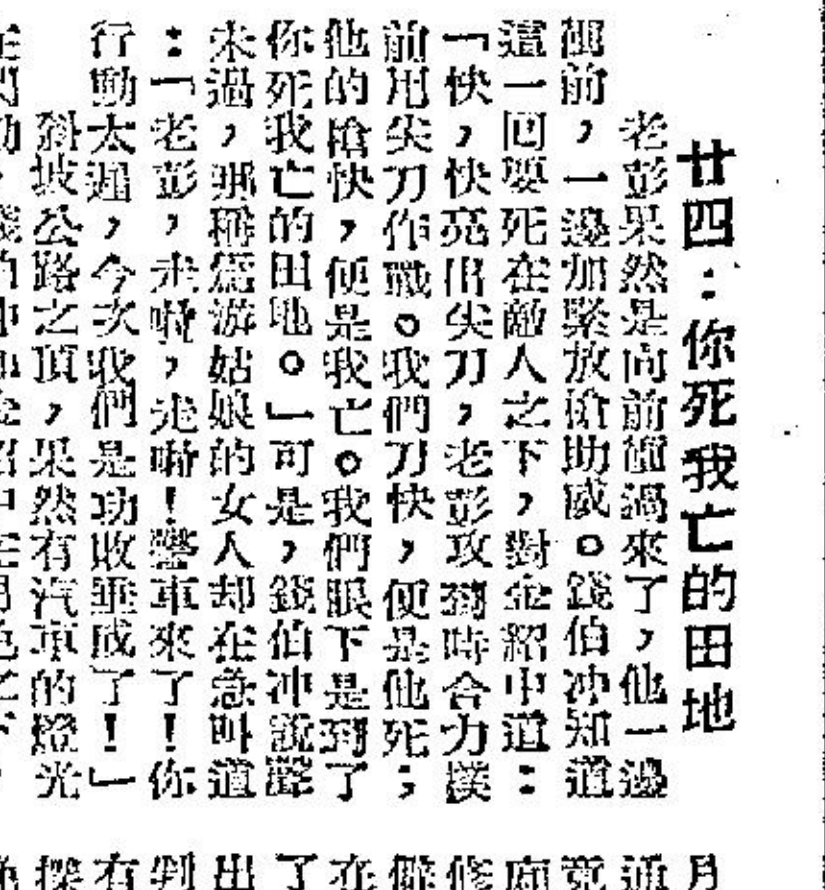 廿四:你死我亡的田地
老彭果然是向前衝過來了,他一邊
衝前,一邊加緊放槍助威。錢伯冲知道
這一回要死在敵人之下,對金紹中道:
「快,快亮出尖刀,老彭攻到時合力撲
前用尖刀作戰。我們刀快,便是他死;
他的槍快,便是我亡。我們眼下是到了
你死我亡的田地。」可是,錢伯冲說聲
未過,那稱為游姑娘的女人却在急叫道
:「老彭,走啦,走啦!警車來了!你
行動太遲,今次我們是功敗垂成了!」
斜坡公路之頂,果然有汽車的燈光
月
通
竟
在
了
出
判
有